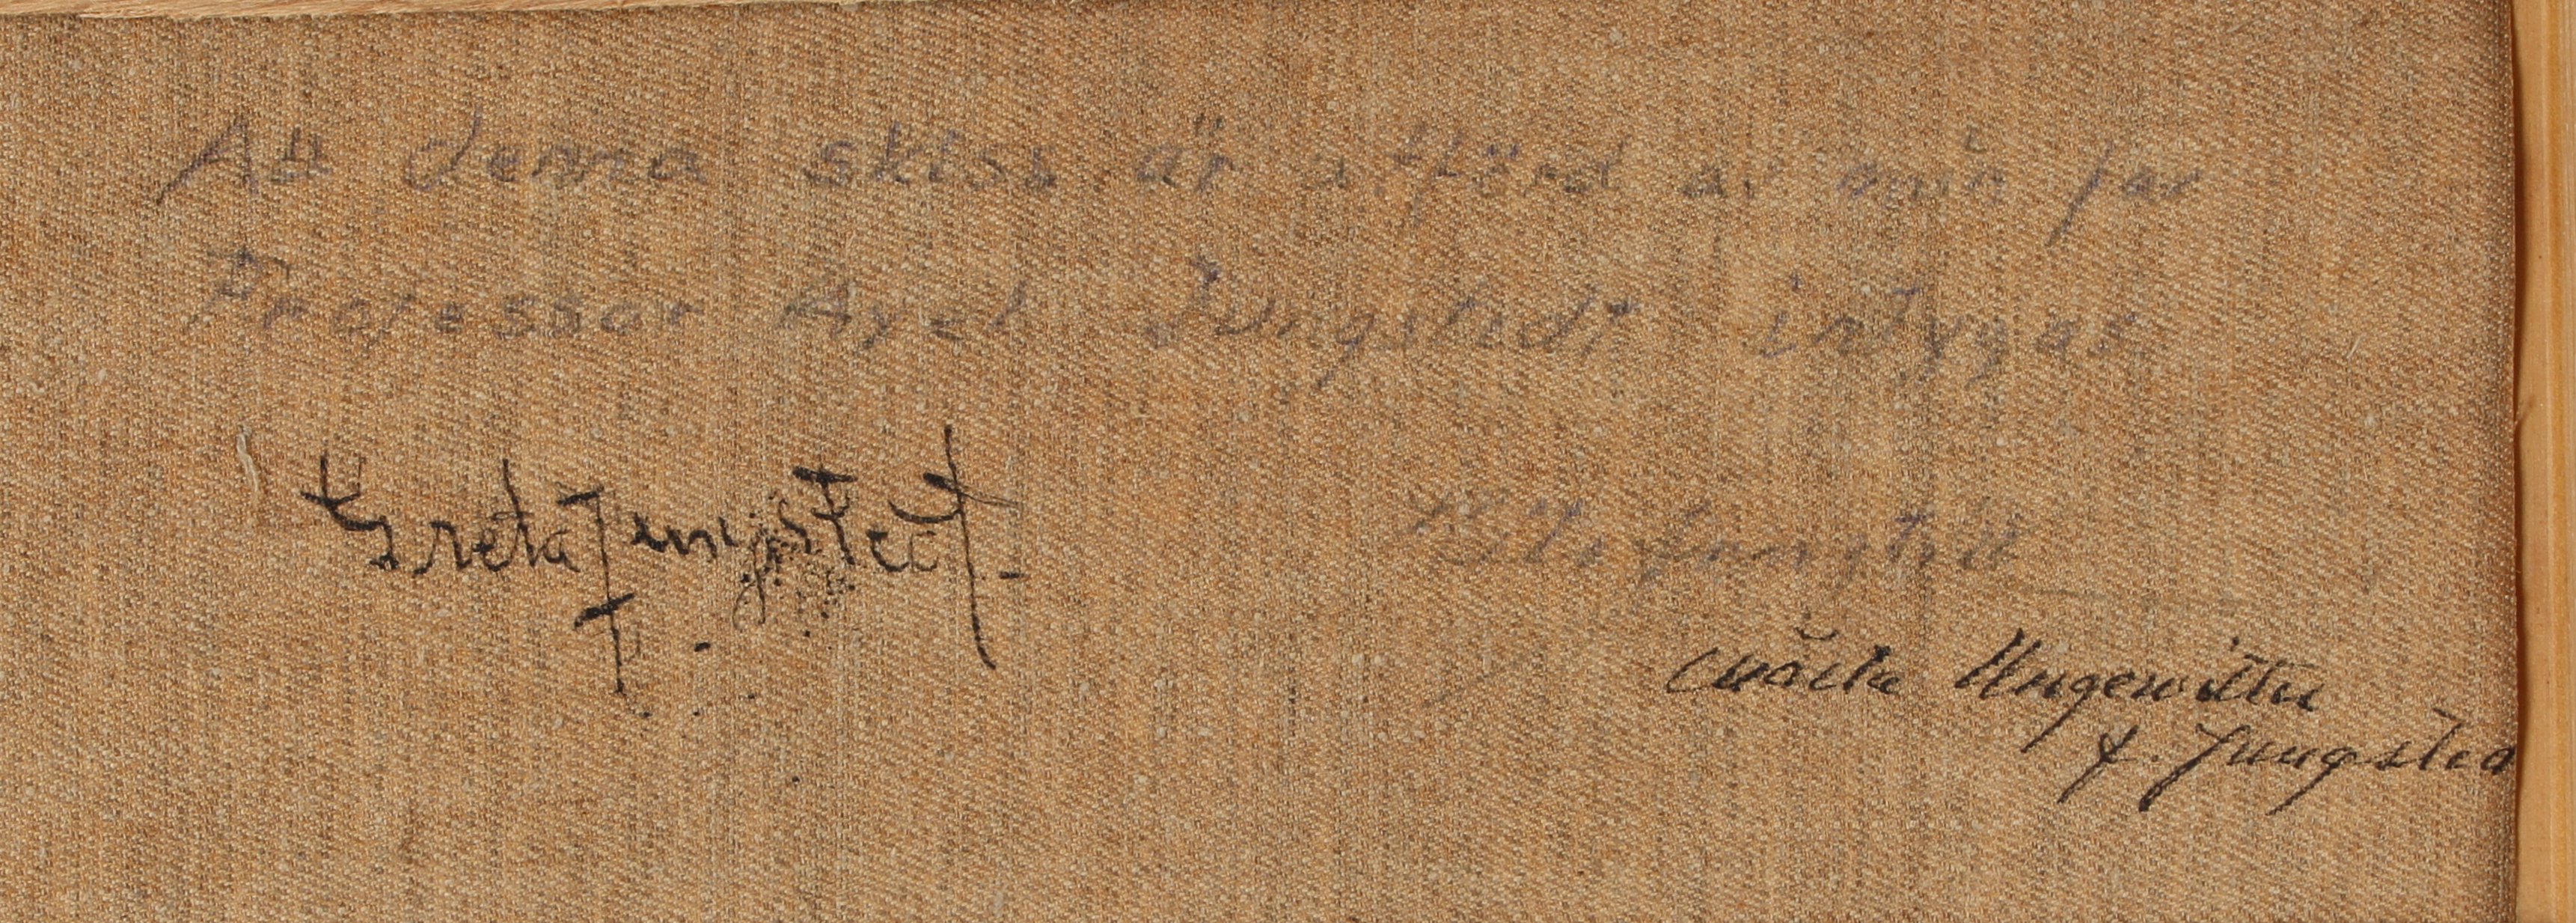 Att denna skiss är utförd av min far
Professor Axel Jungstedt intygas
Greta Jungstedt
Jungstedt
Ungewitter
f. Jungsted